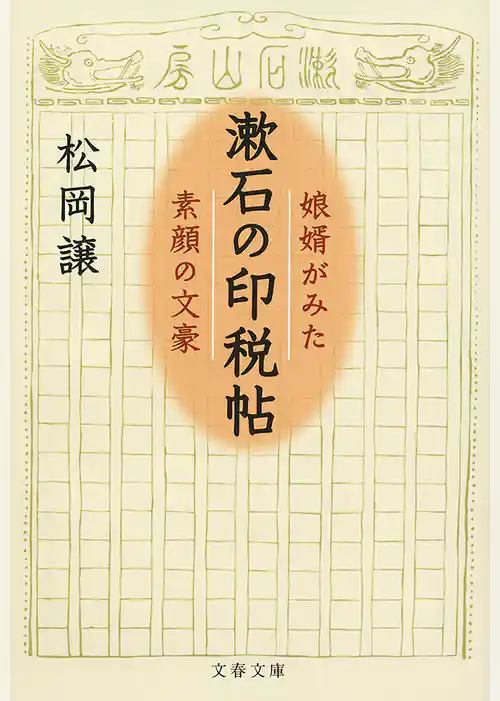 漱石山房
娘婿がみた
漱石の印税帖
素顔の文豪
松岡譲
文春文庫